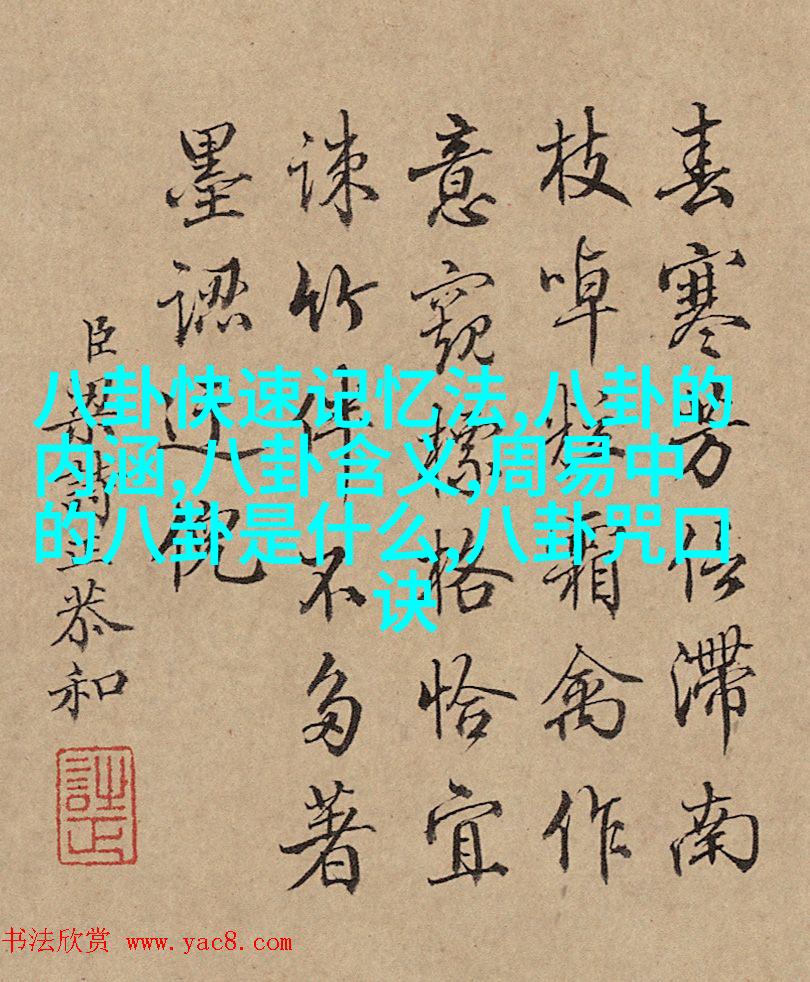 春寒芳信滯南
枝啅霜禽作
意窺格恰宜
竹伴不多著
墨
臣梁詩正恭和
八卦快速记忆法,八卦的
内涵,八卦含义,周易中
的八卦是什么,八卦咒口
诀
书法欣赏 www.yac8.com